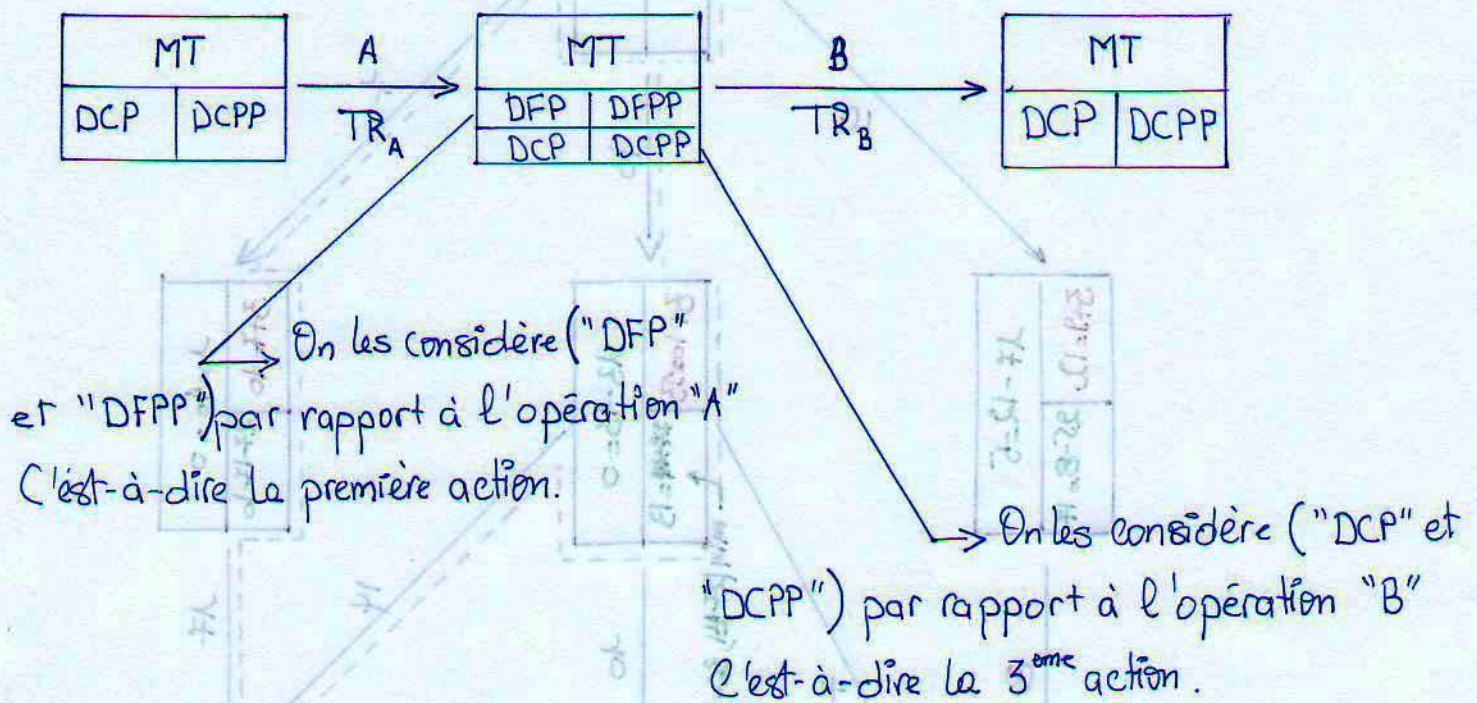 MT A MT B MT
DCP DCPP TR_A DFP DFPP TR_B DCP DCPP
DCP DCPP
On les considère ("DFP"
et "DFPP") par rapport à l'opération "A"
C'est-à-dire la première action.
On les considère ("DCP" et
"DCPP") par rapport à l'opération "B"
C'est-à-dire la 3ème action.
17
14
10
17-12=5
35-8=